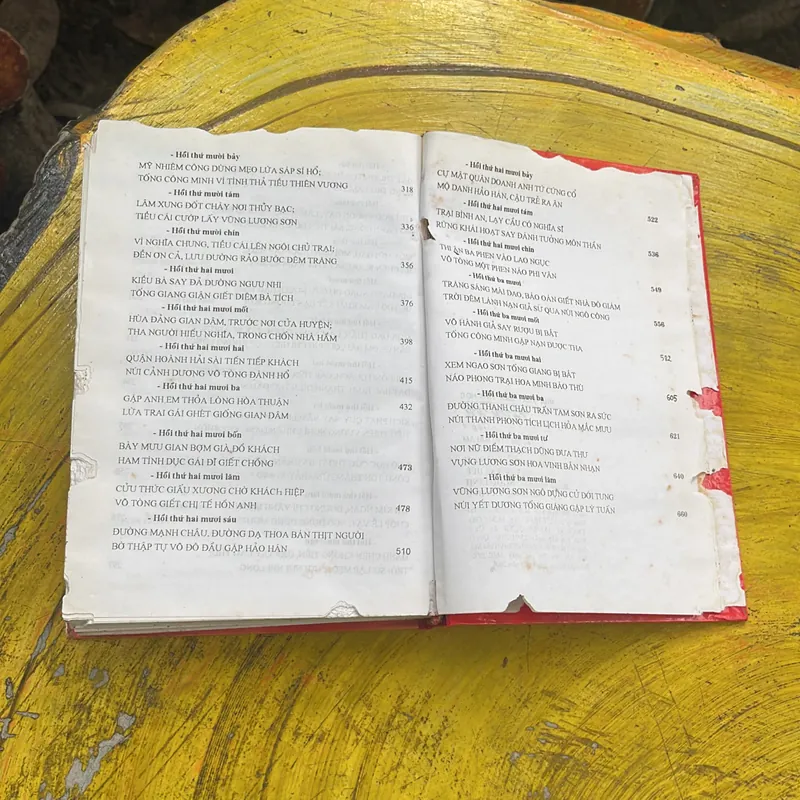 - Hồi thứ mười bảy
MỸ NHIÊM CÔNG DÙNG MẸO LỪA SÁP SÍ HỔ;
TỐNG CÔNG MINH VÌ TÌNH THẢ TIỀU THIÊN VƯƠNG 318
- Hồi thứ mười tám
LÂM XUNG ĐỐT CHÁY NƠI THỦY BẠC;
TIỀU CÁI CƯỚP LẤY VŨNG LƯƠNG SƠN 336
- Hồi thứ mười chín
VÌ NGHĨA CHUNG, TIỀU CÁI LÊN NGÔI CHỦ TRẠI;
ĐỀN ƠN CẢ, LƯU ĐƯỜNG RẢO BƯỚC ĐÊM TRĂNG 356
- Hồi thứ hai mươi
KIỀU BÀ SAY ĐẢ ĐƯỜNG NGƯU NHI
TỐNG GIANG GIẬN GIẾT DIÊM BÀ TÍCH 376
- Hồi thứ hai mươi mốt
HÙA ĐẢNG GIAN DÂM, TRƯỚC NƠI CỬA HUYỆN;
THA NGƯỜI HIẾU NGHĨA, TRONG CHỐN NHÀ HẦM 398
- Hồi thứ hai mươi hai
QUẬN HOÀNH HẢI SÀI TIẾN TIẾP KHÁCH
NÚI CẢNH DƯƠNG VÕ TÒNG ĐÁNH HỔ 415
- Hồi thứ hai mươi ba
GẶP ANH EM THỎA LÒNG HÒA THUẬN 432
LỪA TRAI GÁI GHÉT GIỐNG GIAN DÂM
- Hồi thứ hai mươi bốn
BÀY MƯU GIAN BỢM GIÀ ĐỔ KHÁCH
HAM TÌNH DỤC GÁI ĐĨ GIẾT CHỒNG 473
- Hồi thứ hai mươi lăm
CỬU THỨC GIẤU XƯƠNG CHỜ KHÁCH HIỆP
VÕ TÒNG GIẾT CHỊ TẾ HỒN ANH 478
- Hồi thứ hai mươi sáu
ĐƯỜNG MẠNH CHÂU, ĐƯỜNG DẠ THOA BÁN THỊT NGƯỜI
BỜ THẬP TỰ VÕ ĐÔ ĐẦU GẶP HẢO HÁN 510
- Hồi thứ hai mươi bảy
CỰ MẬT QUÂN DOANH ANH TỪ CỦNG CỐ
MỘ DANH HẢO HÁN, CẬU TRẺ RA ÂN 522
- Hồi thứ hai mươi tám
TRẠI BÌNH AN, LẠY CẦU CÓ NGHĨA SĨ
RỪNG KHÁI HOẠT SAY ĐÁNH TƯỚNG MÔN THẦN 536
- Hồi thứ hai mươi chín
THI ÂN BA PHEN VÀO LAO NGỤC
VÕ TÒNG MỘT PHEN NÁO PHI VÂN 549
- Hồi thứ ba mươi
TRĂNG SÁNG MÀI ĐAO, BÁO OÁN GIẾT NHÀ ĐÔ GIÁM
TRỜI ĐÊM LÁNH NẠN GIẢ SƯ QUA NÚI NGÔ CÔNG 558
- Hồi thứ ba mươi mốt
VÕ HÀNH GIẢ SAY RƯỢU BỊ BẮT
TỐNG CÔNG MINH GẶP NẠN ĐƯỢC THA
- Hồi thứ ba mươi hai 512
XEM NGAO SƠN TỐNG GIANG BỊ BẮT
NÁO PHONG TRẠI HOA MINH BÁO THÙ
- Hồi thứ ba mươi ba 605
ĐƯỜNG THANH CHÂU TRẦN TAM SƠN RA SỨC
NÚI THANH PHONG TÍCH LỊCH HỎA MẮC MƯU 621
- Hồi thứ ba mươi tư
NƠI NỮ ĐIẾM THẠCH DŨNG ĐƯA THƯ
VỤNG LƯƠNG SƠN HOA VINH BẮN NHẠN 640
- Hồi thứ ba mươi lăm
VŨNG LƯƠNG SƠN NGÔ DỤNG CỬ ĐỚI TUNG
NÚI YẾT DƯƠNG TỐNG GIANG GẶP LÝ TUẤN 660